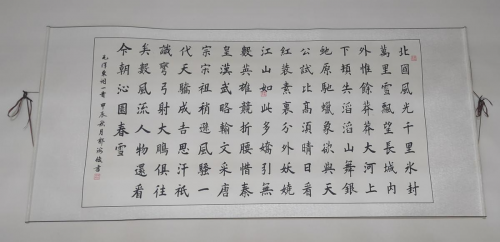 北國風光千里氷封
萬里雪飄望長城内
外惟餘莽莽大河上
下頓失滔滔山舞銀
蛇原馳蠟象欲與天
公試比高須晴日看
紅裝素裹分外妖嬈
江山如此多嬌引無
數英雄競折腰惜秦
皇漢武略輸文采唐
宗宋祖稍遜風騷一
代天驕成吉思汗祇
識彎弓射大鵰俱往
矣數風流人物還看
今朝沁園春雪
毛澤東詞一首 甲辰秋月郭 書